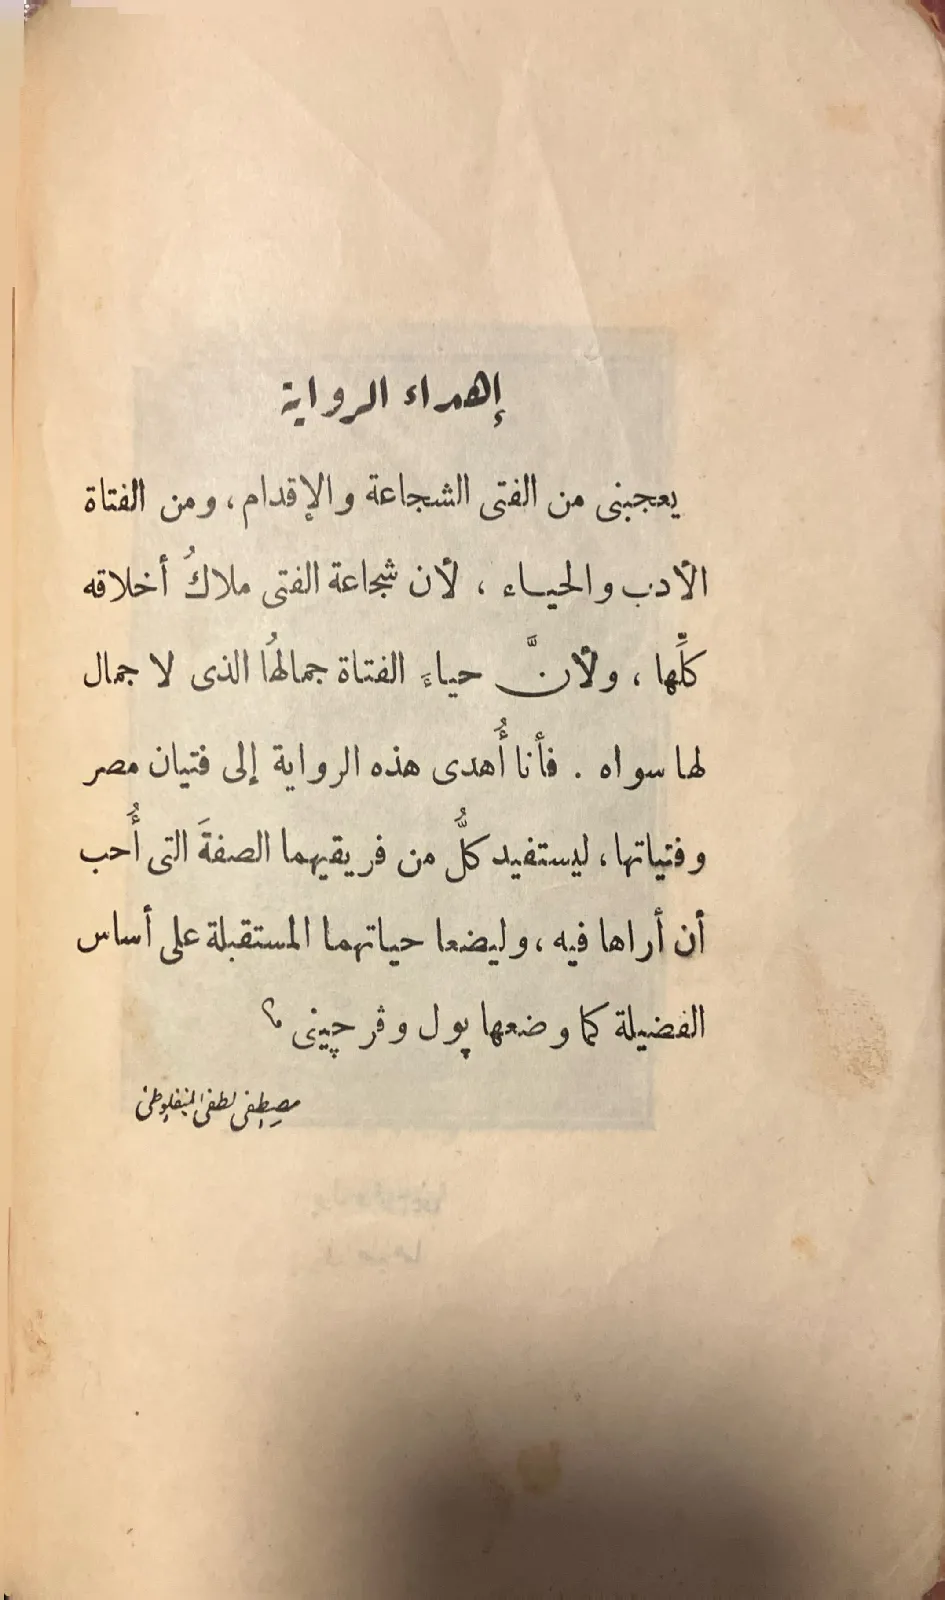 إهداء الرواية
يعجبنى من الفتى الشجاعة والإقدام، ومن الفتاة
الأدب والحياء ، لأن شجاعة الفتى ملاكُ أخلاقه
كلِّها ، ولأنَّ حياءَ الفتاة جمالهُا الذى لا جمال
لها سواه . فأنا أُهدى هذه الرواية إلى فتيان مصر
وفتياتها، ليستفيد كلٌّ من فريقيهما الصفةَ التى أُحب
أن أراها فيه ، وليضعا حياتهما المستقبلة على أساس
الفضيلة كما وضعها پول وڤرچينى
مصطفى لطفى المنفلوطى